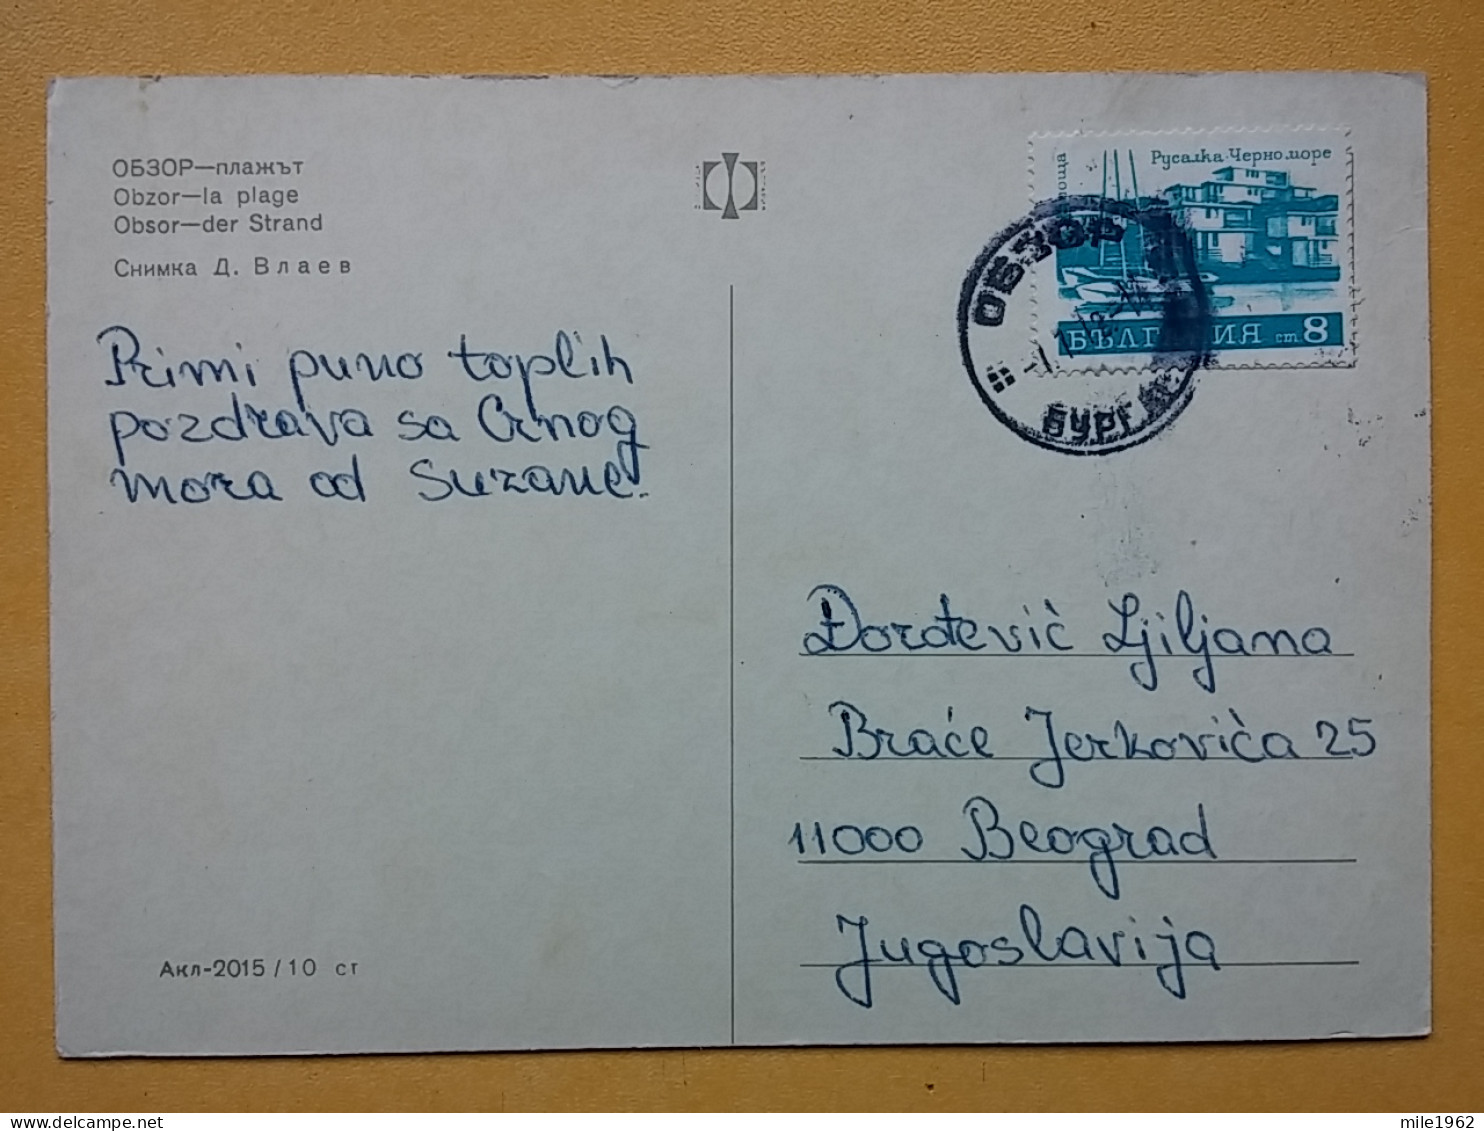 ОБЗОР—плажът
Obzor—la plage
Obsor—der Strand
Снимка Д. Влаев
Primi puno toplih
pozdrava sa Crnog
mora od Suzane.
Акл-2015/10 ст
Русалка Черно море
БЪЛГАРИЯ ст 8
ОБЗОР
БУРГАС
Đorđević Ljiljana
Braće Jerkovića 25
11000 Beograd
Jugoslavija
mile1962